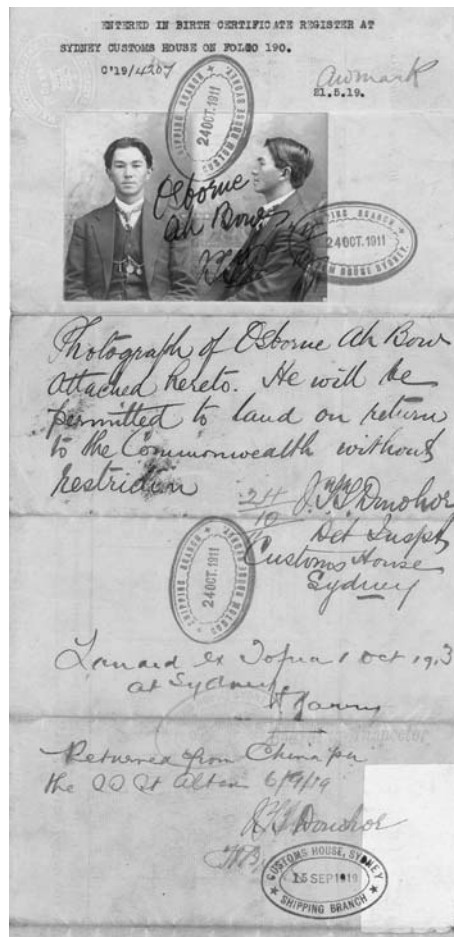 ENTERED IN BIRTH CERTIFICATE REGISTER AT
SYDNEY CUSTOMS HOUSE ON FOLIO 190.
C'19/4207
21.5.19.
SHIPPING BRANCH
24 OCT. 1911
CUSTOM HOUSE SYDNEY
Osborne
Ah Bow
SHIPPING BRANCH
24 OCT. 1911
CUSTOM HOUSE SYDNEY.
Photograph of Osborne Ah Bow
attached hereto. He will be
permitted to land on return
to the Commonwealth without
restriction
24/10 J.T.T. Donohoe
Det Inspr
Customs House
Sydney
SHIPPING BRANCH
24 OCT. 1911
CUSTOM HOUSE SYDNEY
Landed ex Tofua 1 Oct 1913
at Sydney
Inspector
Returned from China per
the SS St Alban 6/9/19
J.T.T. Donohoe
CUSTOMS HOUSE, SYDNEY
15 SEP 1919
SHIPPING BRANCH